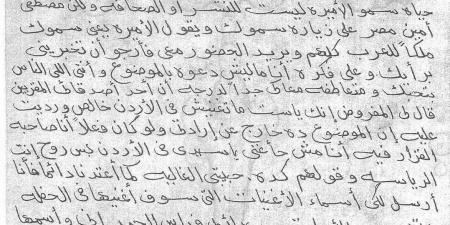 حياة سمو الأميرة ليست للنشر او الصحافة ولكن مصطفى
أمين مصر على زيارة سموك ويقول الأميرة يعنى سموك
ملكاً للعرب كلهم ويريد الحضور معى فأرجو أن تخبرينى
برأيك وعلى فكرة أنا ماليش دعوة بالموضوع وأنتى اللى الناس
بتحبك ومتعاطفه معاكى جداً لدرجة ان آخر أحد قال المقربين
قال لى المفروض إنك ياست ما تغنيش فى الأردن خالص ورديت
عليه إن الموضوع ده خارج عن إرادتى ولو كان فعلاً أنا صاحبة
القرار فيه أنا مش حأغنى يا سيدى فى الأردن بس روح إنت
الرياسه وقولهم كده. حبيبتى الغاليه لما أعتدنا دائماً فأنا
أرسل لكى أسماء الأغنيات التى سوف أغنيها فى الحفله